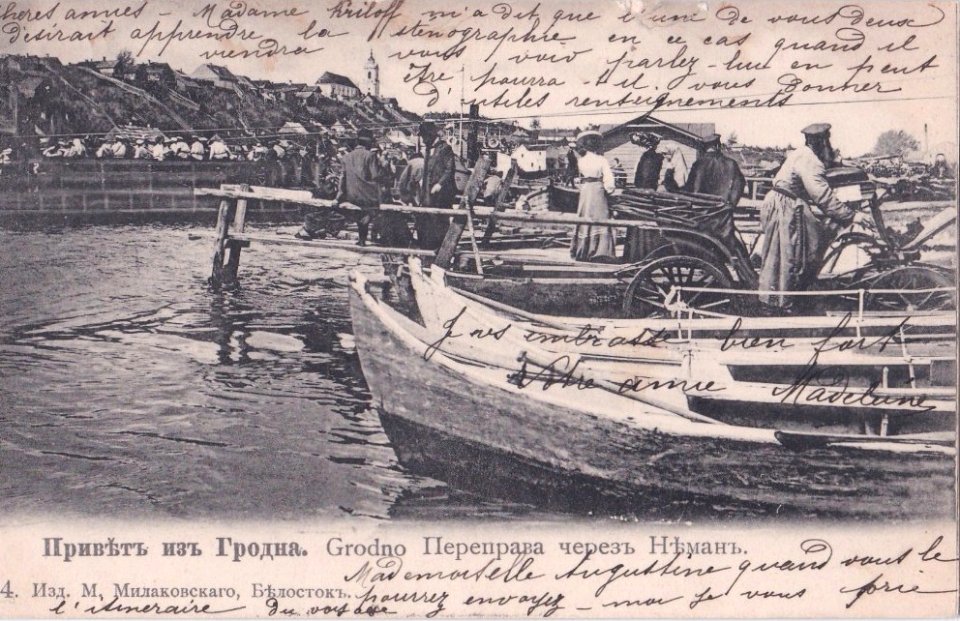 chères amies - Madame Kriloff m'a dit que l'une de vous deux
désirait apprendre la sténographie en ce cas quand il
viendra vous voir parlez-lui en peut
être pourra-t-il vous donner
d'utiles renseignements
Je vs embrasse bien fort
Votre amie Madeleine
Привѣтъ изъ Гродна. Grodno Переправа черезъ Нѣманъ.
4. Изд. М. Милаковскаго, Бѣлостокъ.
Mademoiselle Augustine quand vous le
pourrez envoyez-moi je vous prie
l'itineraire du voyage